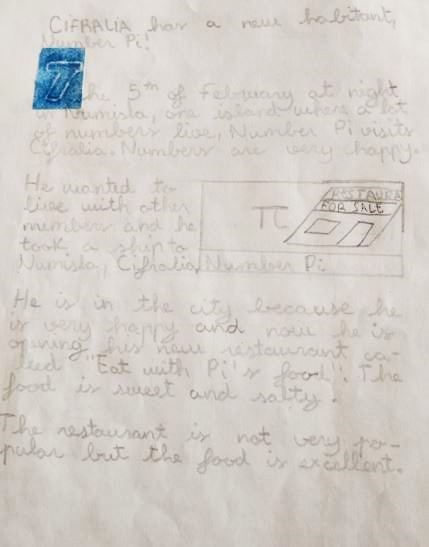 CIFRALIA has a new habitant,
Number Pi!
The 5th of February at night
in Numisla, one island where a lot
of numbers live, Number Pi visits
Cifralia. Numbers are very happy.
He wanted to
live with other
numbers and he
took a ship to
Numisla, Cifralia
RESTAURA
FOR SALE
π
Number Pi
He is in the city because he
is very happy and now he is
opening his new restaurant ca-
lled "Eat with Pi's food". The
food is sweet and salty.
The restaurant is not very po-
pular but the food is excellent.